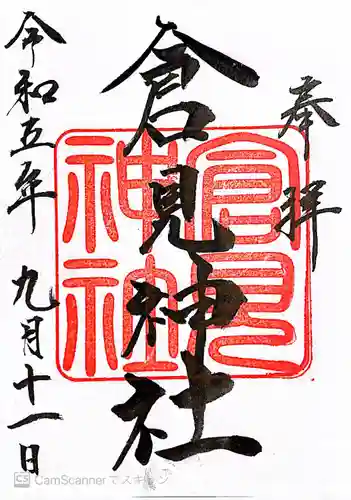 奉拝
倉見神社
倉見
神社
令和五年九月十一日
CS CamScanner でスキャン